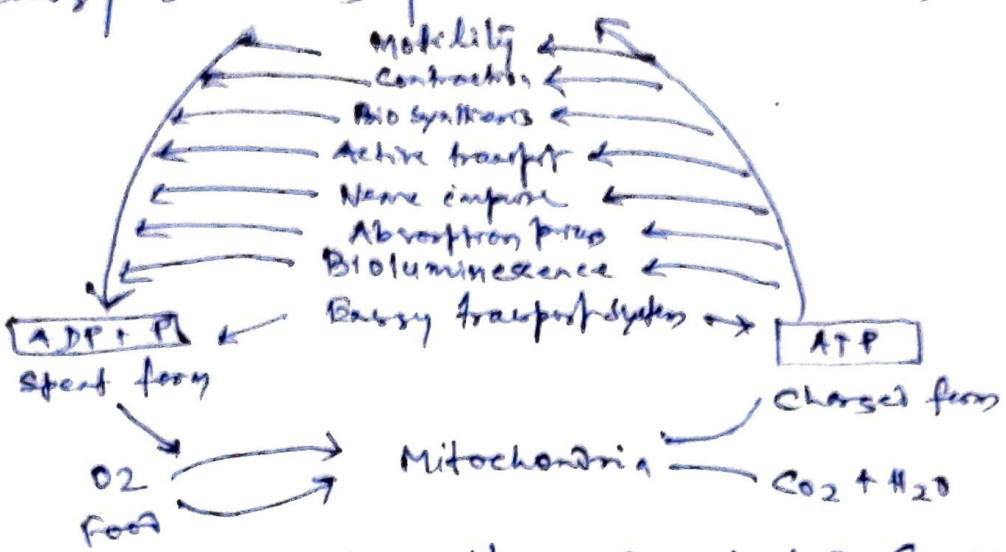 Motility
Contraction
Bio synthesis
Active transport
Nerve impulse
Absorption process
Bioluminescence
Energy transport system
ADP + P
ATP
Spent form
Charged form
O2
Mitochondria
CO2 + H2O
Food